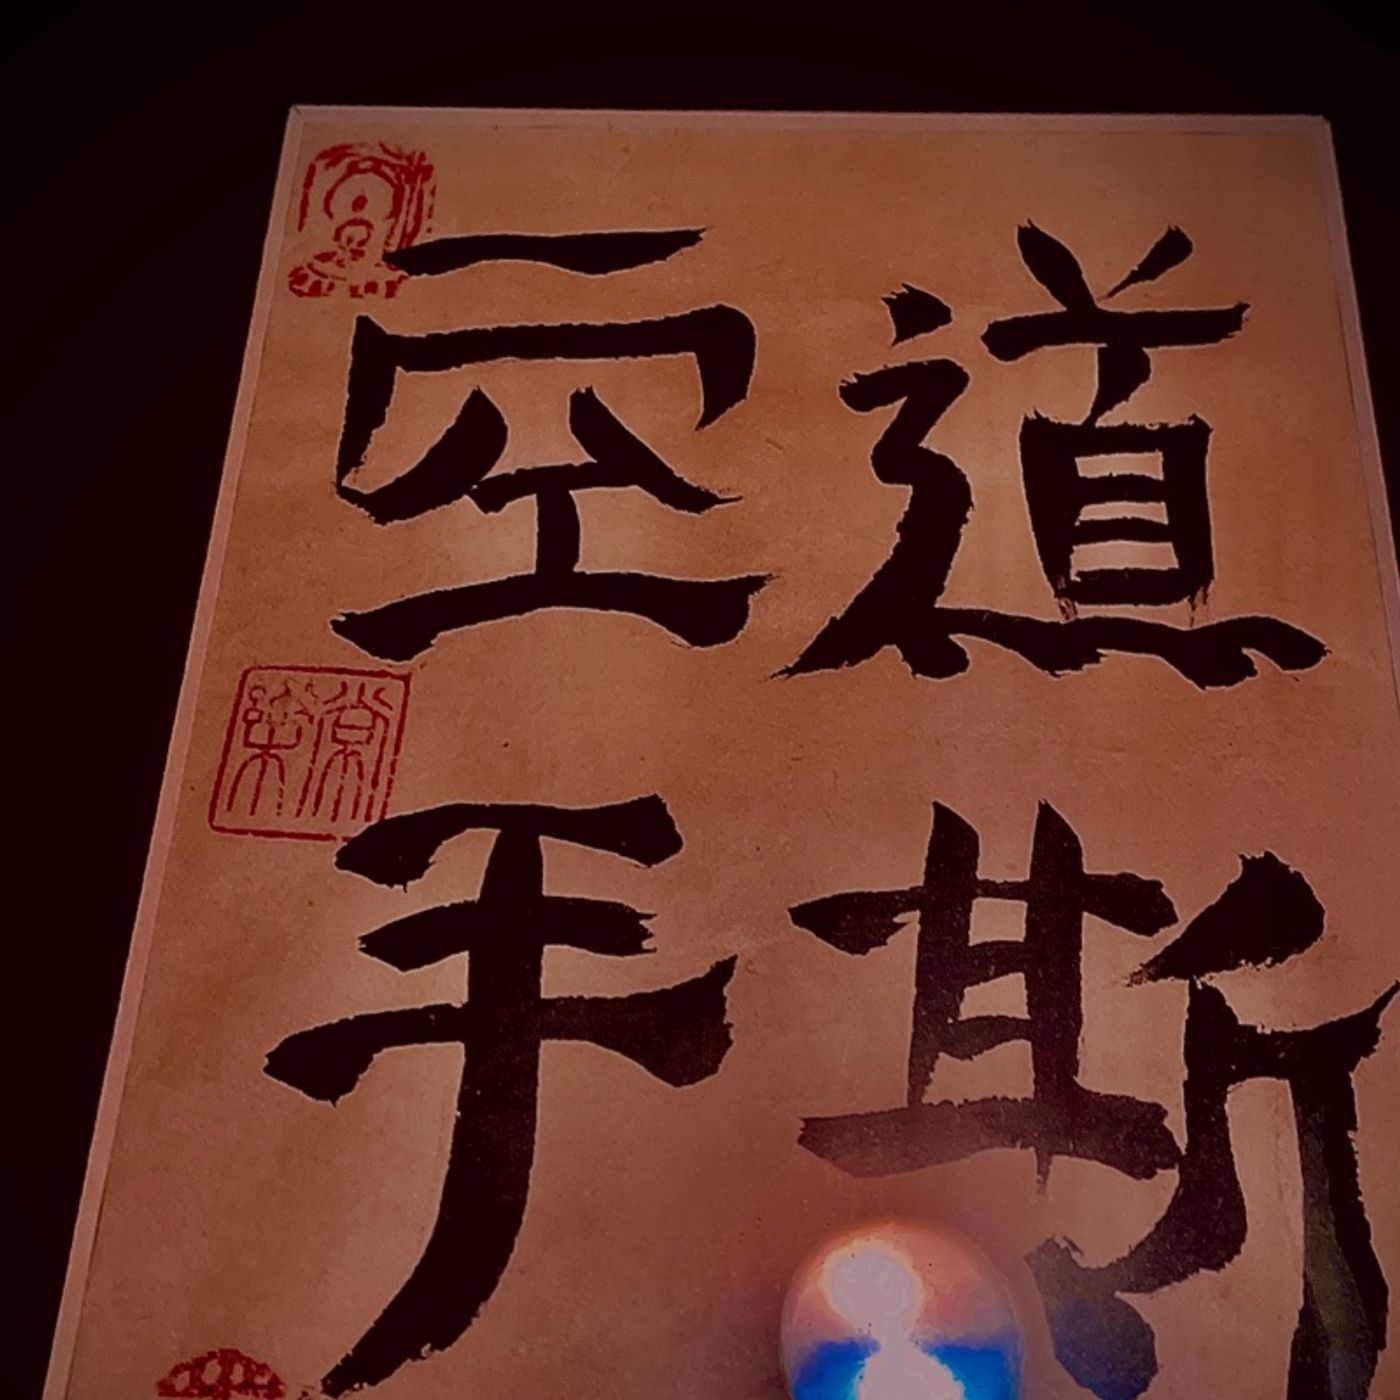 道斯
空手